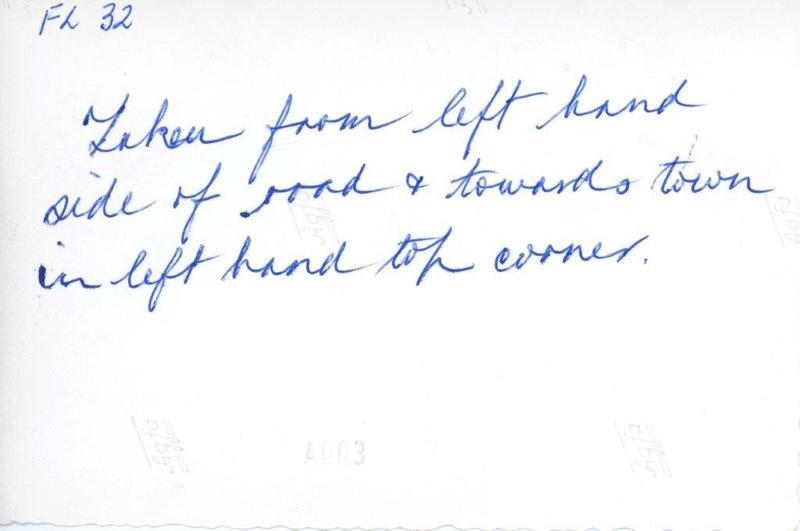 FL 32
Taken from left hand
side of road & towards town
in left hand top corner.
Agfa
Agfa
Agfa
A003
Agfa